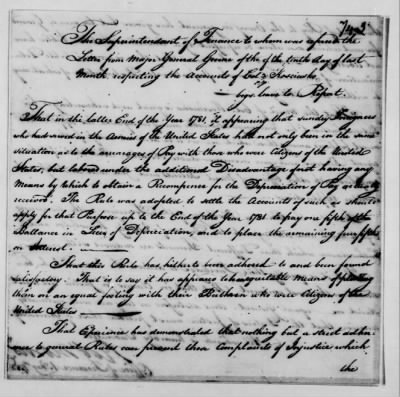 The Superintendant of Finance to whom was referred the
Letter from Major General Greene of the tenth day of last
Month respecting the Accounts of Coll Kosciusko
begs leave to Report.
That in the latter End of the Year 1781. it appearing that sundry Foreigners
who had served in the Armies of the United States had not only been in the same
situation as to the arrearages of Pay with those who were Citizens of the United
States, but labored under the additional Disadvantage of not having any
Means by which to obtain a Recompence for the Depreciation of Pay
received. The Rule was adopted to settle the Accounts of such as should
apply for that Purpose up to the End of the Year 1781 to pay one fifth of the
Ballance in Lieu of Depreciation, and to place the remaining four fifths
on Interest.
That this Rule has hitherto been adhered to and been found
satisfactory. That is to say it has appeared the equitable Means of putting
them on an equal footing with their Brethren who were Citizens of the
United States
That Experience has demonstrated that nothing but a strict adhe-
rence to general Rules can prevent those Complaints of Injustice which
the